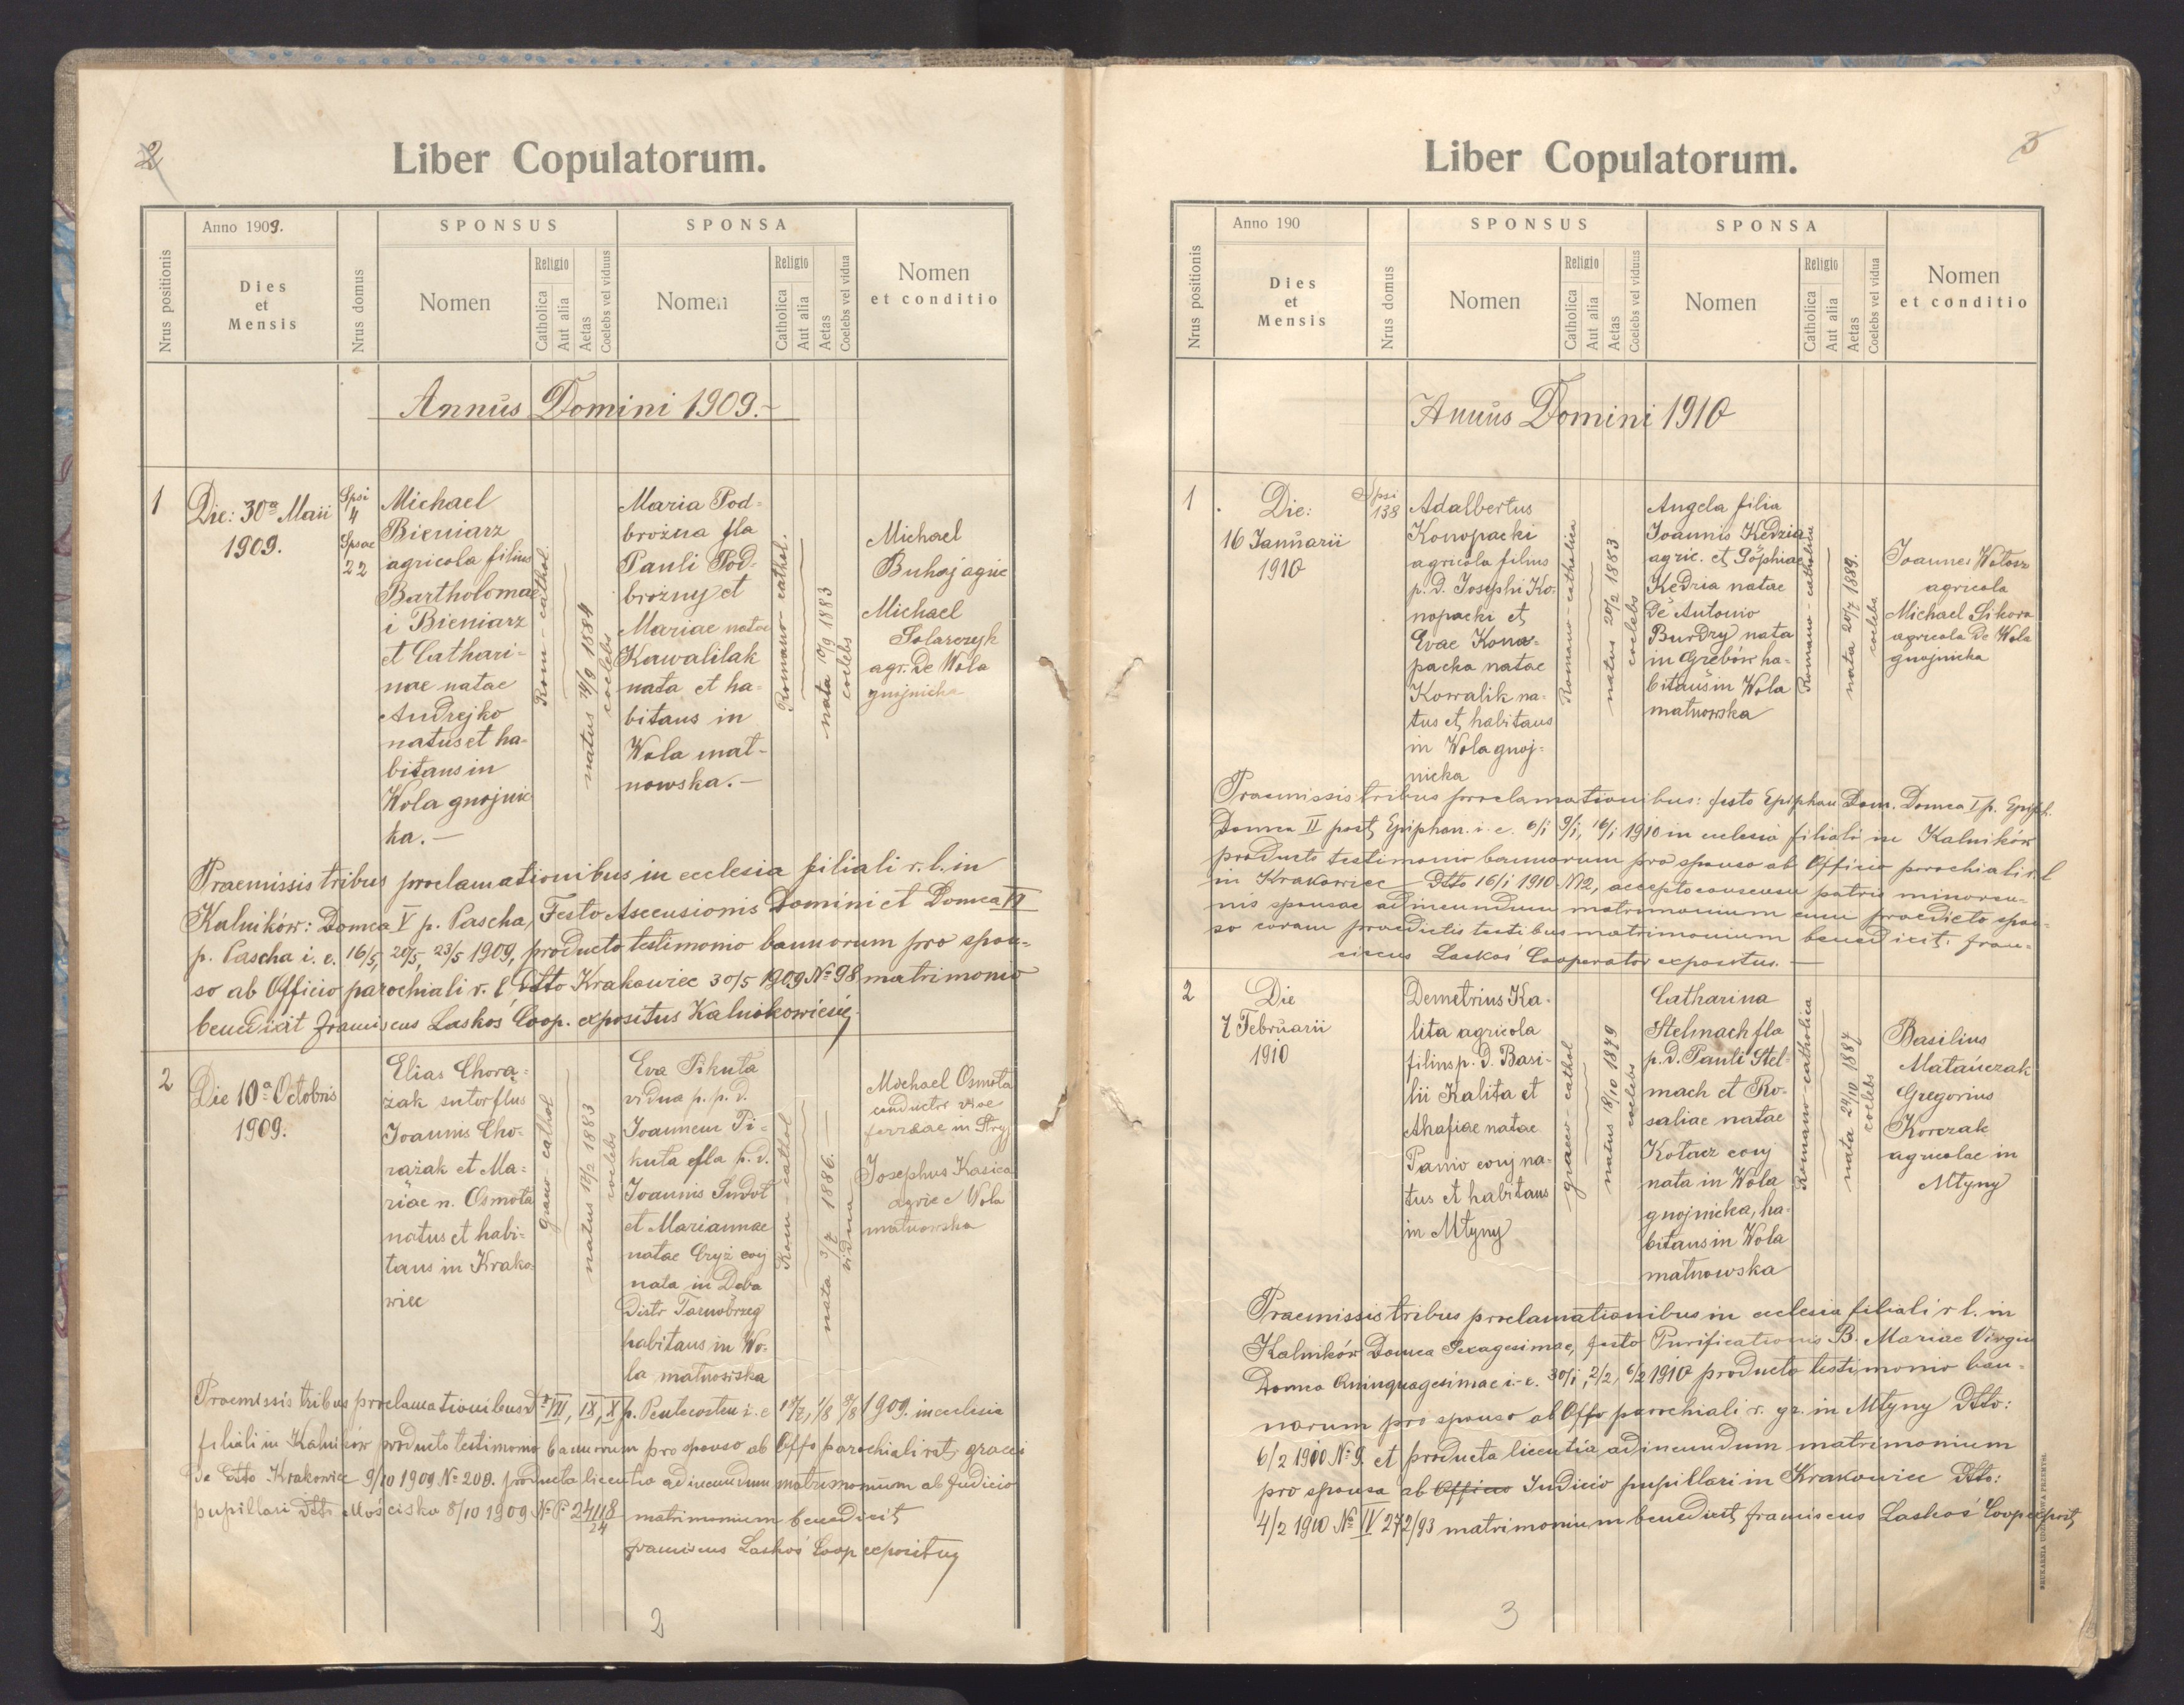 2
Liber Copulatorum.
Nrus positionis
Anno 1909.
Dies
et
Mensis
Nrus domus
SPONSUS
Nomen
Religio
Catholica
Aut alia
Aetas
Coelebs vel viduus
SPONSA
Nomen
Religio
Catholica
Aut alia
Aetas
Coelebs vel vidua
Nomen
et conditio
Annus Domini 1909.-
1
Die: 30a Maii
1909.
Spsi
4
Spsae
22
Michael
Bieniarz
agricola filius
Bartholomae
i Bieniarz
et Cathari-
nae natae
Andrejko
natus et ha-
bitans in
Wola gnojnic
ka.-
Rom-cathol.
natus 14/9 1884
coelebs
Maria Pod-
brożna fla
Pauli Pod-
brożny et
Mariae natae
Kawalilak
nata et ha-
bitans in
Wola mat-
nowska.-
Romano-cathol.
nata 10/9 1883
coelebs
Michael
Buhaj agric
Michael
Solarczyk
agr. de Wola
gnojnicka
Praemissis tribus proclamationibus in ecclesia filiali r. l. in
Kalników: Domca V p. Pascha, Festo Ascensionis Domini et Domca VI
p. Pascha i. e. 16/5, 20/5, 23/5 1909, producto testimonio bannorum pro spon-
so ab Officio parochiali r. l. Dtto Krakowiec 30/5 1909 No 98 matrimonio
benedixit Franciscus Laskoś Coop. expositus
2
Die 10a Octobris
1909.
Elias Chorą-
żak sutor flus
Joannis Cho-
rążak et Ma-
riae n. Osmota
natus et habi-
tans in Krako-
wiec
graeco-cathol
natus 12/2 1883
coelebs
Eva Pikuta
vidua p. p. d.
Joannem Pi-
kuta fla p. d.
Joannis Sudoł
et Mariannae
natae Gryż
nata in Dąba
Distr Tarnobrzeg
habitans in Wo-
la matnowska
Rom-cathol
nata 3/7 1886.
vidua
Michael Osmota
conductor viae
ferreae in Stryj
Josephus Kasica
agric e Wola
matnowska
Praemissis tribus proclamationibus VIII, IX, X p. Pentecosten i. e 1/8 8/8 1909. in ecclesia
filiali in Kalników producto testimonio bannorum pro sponso ab Offo parochiali rit. graeci
de dtto Krakowiec 9/10 1909 No 200. producta licentia ad ineundum matrimonium ab Judicio
pupillari Mościska 8/10 1909 No P. 241/18/24 matrimonium benedixit
Franciscus Laskoś Coop expositus
2
3
Liber Copulatorum.
Nrus positionis
Anno 190
Dies
et
Mensis
Nrus domus
SPONSUS
Nomen
Religio
Catholica
Aut alia
Aetas
Coelebs vel viduus
SPONSA
Nomen
Religio
Catholica
Aut alia
Aetas
Coelebs vel vidua
Nomen
et conditio
Annus Domini 1910
1
Die:
16 Januarii
1910
Spsi
138
Adalbertus
Konopacki
agricola filius
p. d. Josephi Ko-
nopacki et
Evae Kono-
packa natae
Kowalik na-
tus et habitans
in Wola gnoj-
nicka
Romano-catholica
natus 20/2 1883
coelebs
Angela filia
Joannis Kędzia
agric. et Sophiae
Kędzia natae
de Antonio
Burdzy nata
in Grębów ha-
bitans in Wola
matnowska
Romano-catholica
nata 20/7 1889.
coelebs
Joannes Wołosz
agricola
Michael Sikora
agricola de Wola
gnojnicka
Praemissis tribus proclamationibus: festo Epiphan Dom. Domca I p. Epiph.
Domca II post Epiphan. i. e. 6/i 9/i, 16/i 1910 in ecclesia filiali in Kalników
producto testimonio bannorum pro sponso ab Officio parochiali r. l
in Krakowiec Dtto 16/i 1910 N2, accepto consensu patris minoren-
nis sponsae ad ineundum matrimonium cum praedicto spon-
so coram praedictis testibus matrimonium benedixit: Fran-
ciscus Laskoś Cooperator expositus.-
2
Die
7 Februarii
1910
Demetrius Ka-
lita agricola
filius p. d. Basi-
lii Kalita et
Ahafiae natae
Panio conj na-
tus et habitans
in Młyny
graeco-cathol
natus 18/10 1879
coelebs
Catharina
Stelmach fla
p. d. Pauli Stel-
mach et Ro-
saliae natae
Kołacz conj
nata in Wola
gnojnicka, ha-
bitans in Wola
matnowska
Romano-catholica
nata 24/10 1887
coelebs
Basilius
Matańczak
Gregorius
Korczak
agricolae in
Młyny
Praemissis tribus proclamationibus in ecclesia filiali r l. in
Kalników Domca Sexagesimae, festo Purificationis B. Mariae Virgin
Domca Quinquagesimae i. e. 30/i, 2/2, 6/2 1910 producto testimonio ban-
norum pro sponso ab Offo parochiali r. gr. in Młyny Dtto:
6/2 1910 No 9. et producta licentia ad ineundum matrimonium
pro sponsa ab Officio Judicio pupillari in Krakowiec Dtto:
4/2 1910 No IV 272/93 matrimonium benedixit Franciscus Laskoś Coop exposit
3